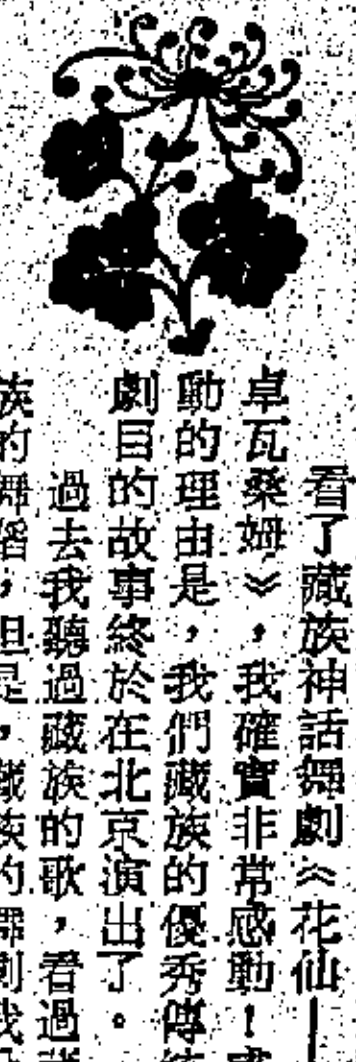 看了藏族神話舞劇《花仙—
卓瓦桑姆》，我確實非常感動！
動的理由是，我們藏族的優秀傳
劇目的故事終於在北京演出了。
過去我聽過藏族的歌，看過
族的舞蹈，但是，藏族的舞劇我